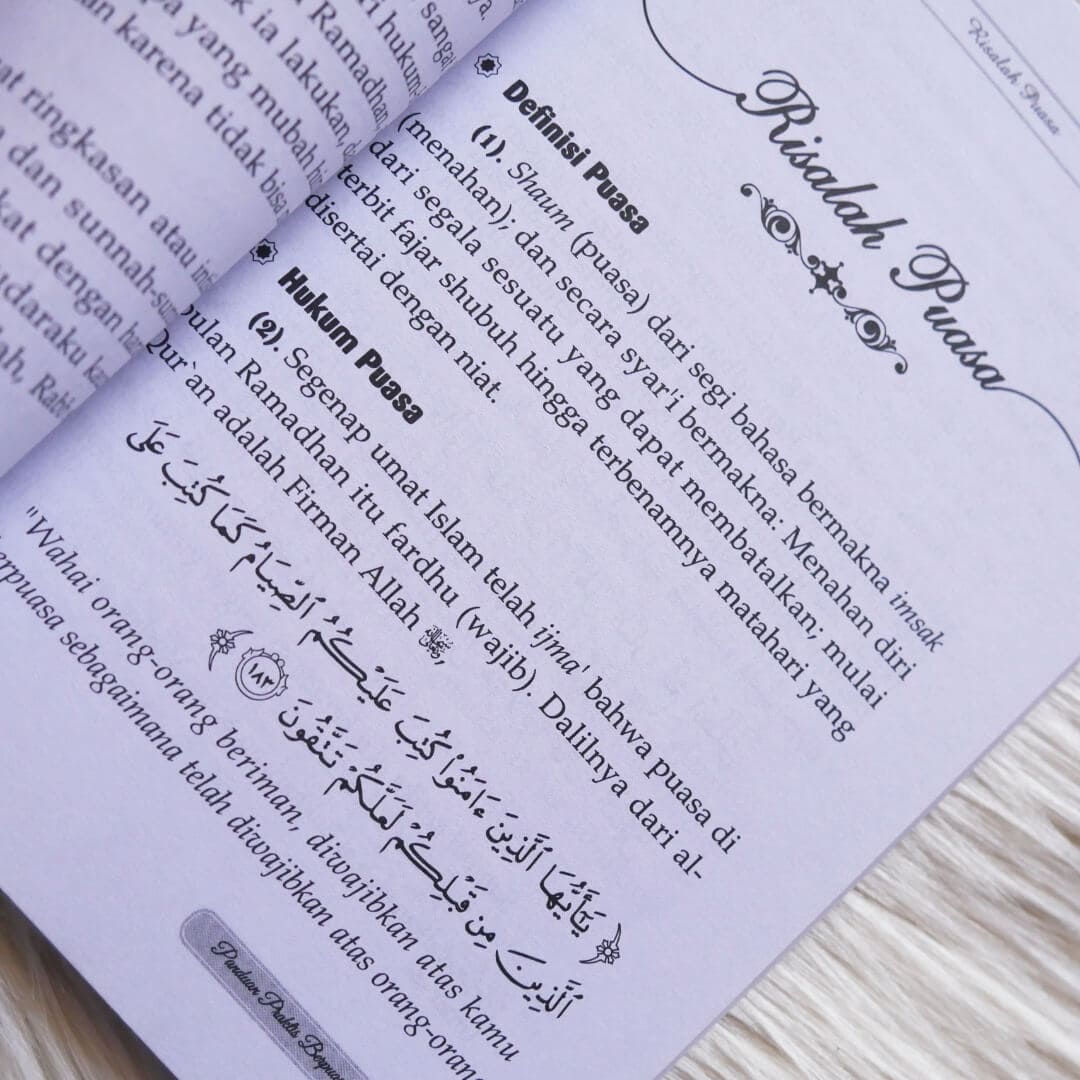 sangat
ya.
hukum-
Ramadhan
ia lakukan,
yang mubah
karena tidak bisa
ringkasan atau
dan sunnah-
dengan
Risalah Puasa
Risalah Puasa
Definisi Puasa
(1). Shaum (puasa) dari segi bahasa bermakna imsak
(menahan); dan secara syar'i bermakna: Menahan diri
dari segala sesuatu yang dapat membatalkan, mulai
terbit fajar shubuh hingga terbenamnya matahari yang
disertai dengan niat.
Hukum Puasa
(2). Segenap umat Islam telah ijma' bahwa puasa di
bulan Ramadhan itu fardhu (wajib). Dalilnya dari al-
Qur`an adalah Firman Allah ﷻ,
يَٰٓأَيُّهَا ٱلَّذِينَ ءَامَنُوا۟ كُتِبَ عَلَيْكُمُ ٱلصِّيَامُ كَمَا كُتِبَ عَلَى
ٱلَّذِينَ مِن قَبْلِكُمْ لَعَلَّكُمْ تَتَّقُونَ ١٨٣
"Wahai orang-orang beriman, diwajibkan atas kamu
berpuasa sebagaimana telah diwajibkan atas orang-orang
Panduan Praktis Berpuasa